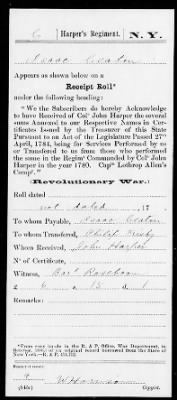 C | Harper's Regiment. | N. Y.
Isaac Ceaton
Appears as shown below on a
Receipt Roll*
under the following heading:
"We the Subscribers do hereby Acknowledge
to have Received of Colº John Harper the several
sums Annexed to our Respective Names in Cer-
tificates Issued by the Treasurer of this State
Pursuant to an Act of the Legislature Passed 27th
April, 1784, being for Services Performed by us
or Transferred to us from those who performed
the same in the Regimt Commanded by Colº John
Harper in the year 1780. Capt Lothrop Allen's
Compy."
(Revolutionary War.)
Roll dated
not dated, 17
To whom Payable, Isaac Ceaton
To whom Transferred, Philip
When Received, John Harper
Nº of Certificate,
Witness, Bart Roseboom
£ 6 s. 15 d. 1
Remarks:
*Copy made in the R. & P. Office, War Department, in
October, 1895, of an original record borrowed from the State of
New York.—R. & P.
W. Harrison
Copyist.